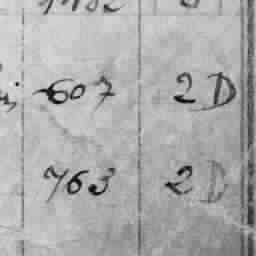 607 2D
763 2D